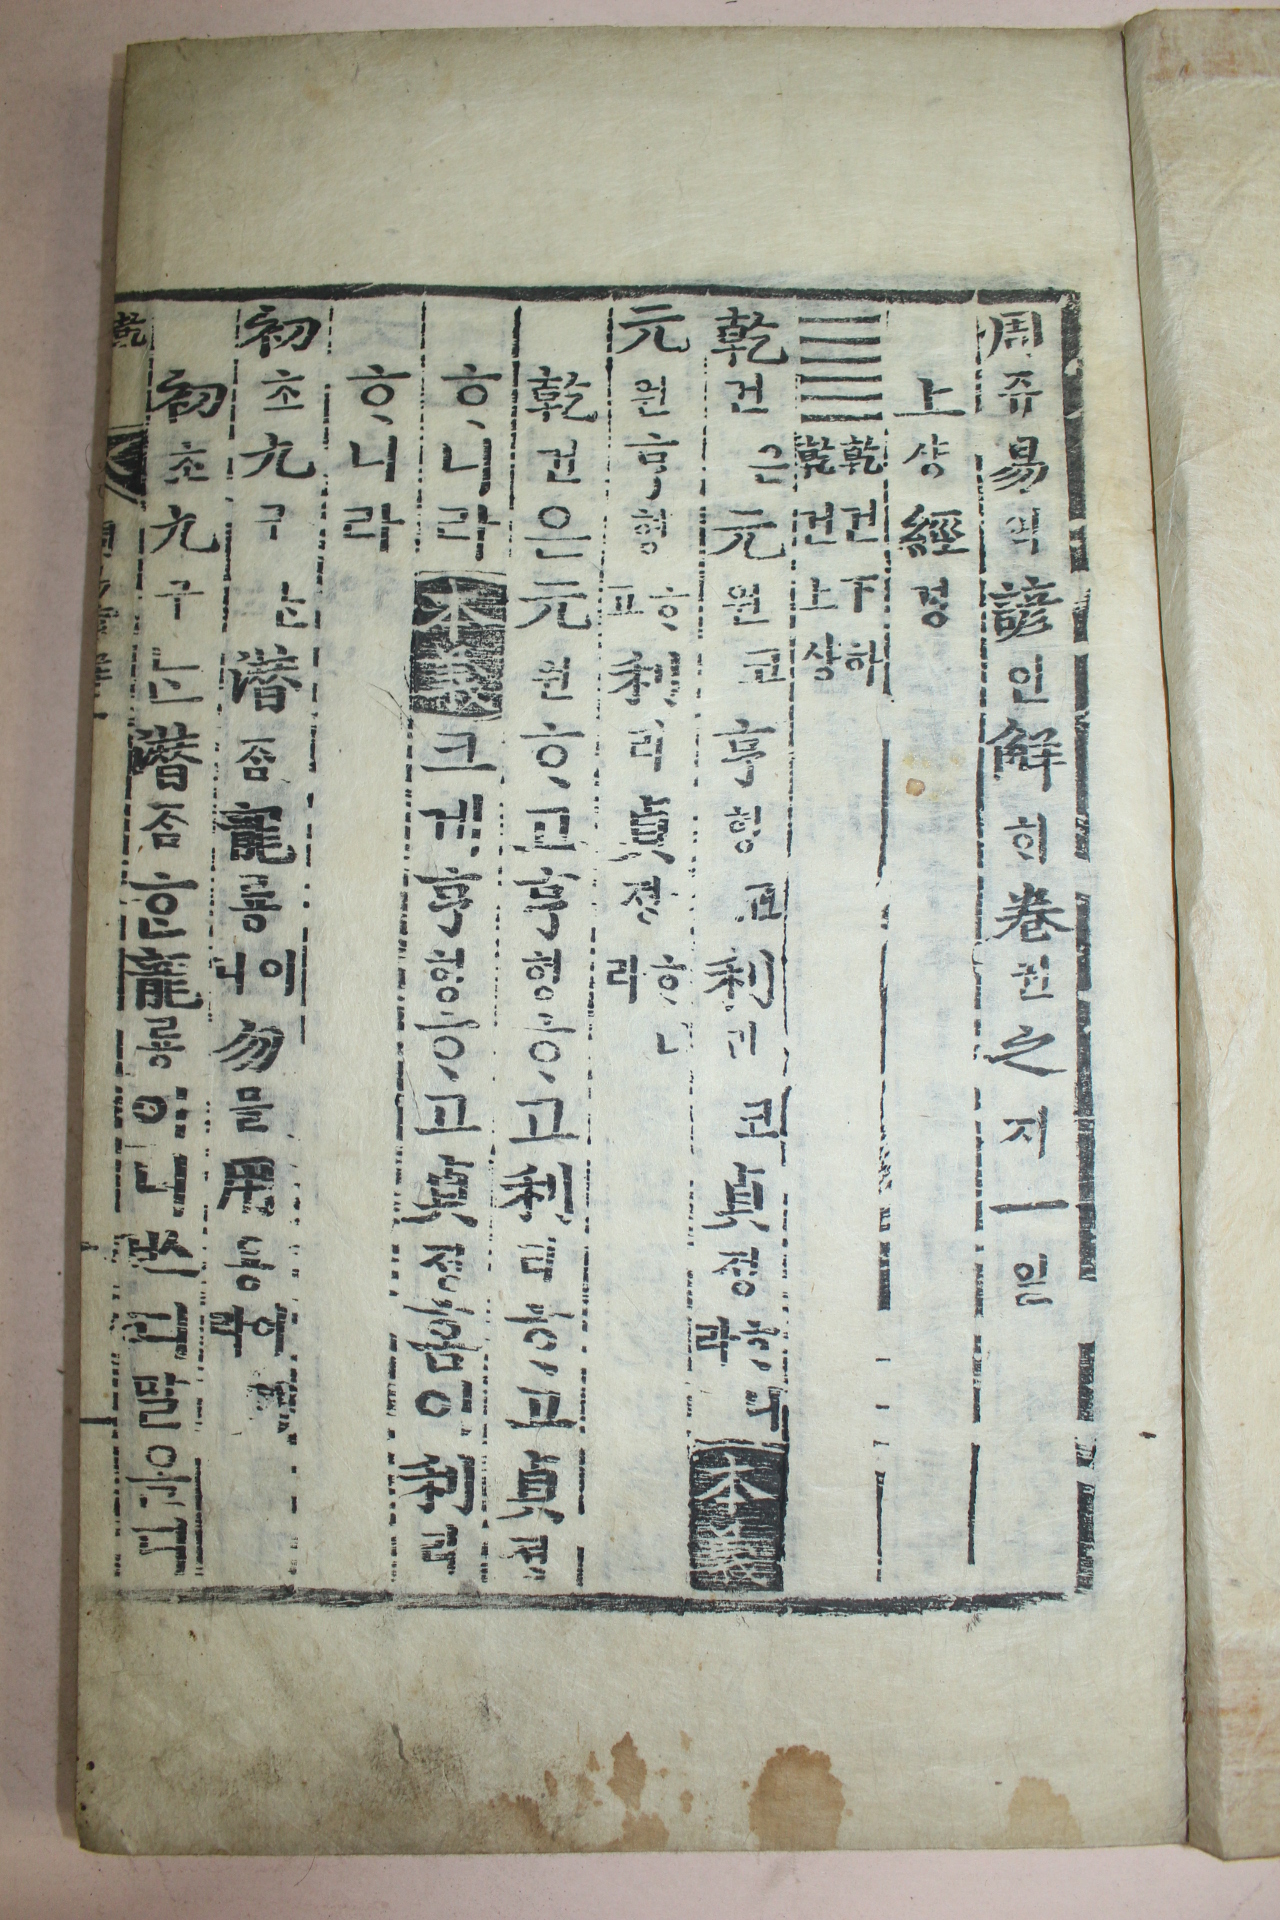 周쥬易역諺언解ᄒᆡ卷권之지一일
上샹經경
乾건下하
乾건上샹
乾건은元원코亨형코利리코貞졍ᄒᆞ니라本義
元원亨형ᄒᆞ고利리貞졍ᄒᆞ니라
乾건은元원ᄒᆞ고亨형ᄒᆞ고利리ᄒᆞ고貞졍
ᄒᆞ니라本義크게亨형ᄒᆞ고貞졍홈이利리
ᄒᆞ니라
初초九구는潛ᄌᆞᆷ龍룡이니勿믈用용이니라
初초九구는潛ᄌᆞᆷᄒᆞᆫ龍룡이니ᄡᅳ디말올디
乾